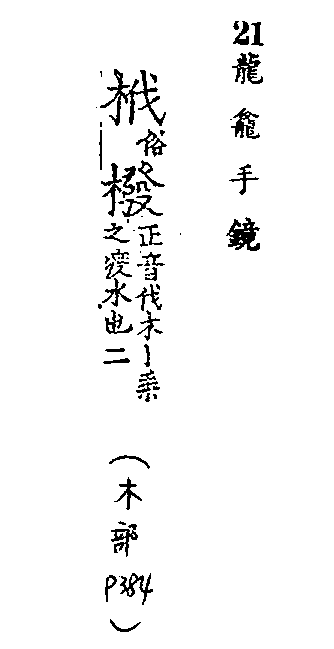 21 龍龕手鏡
栰俗橃正音伐木丨乘
之渡水也二
(木部P384)